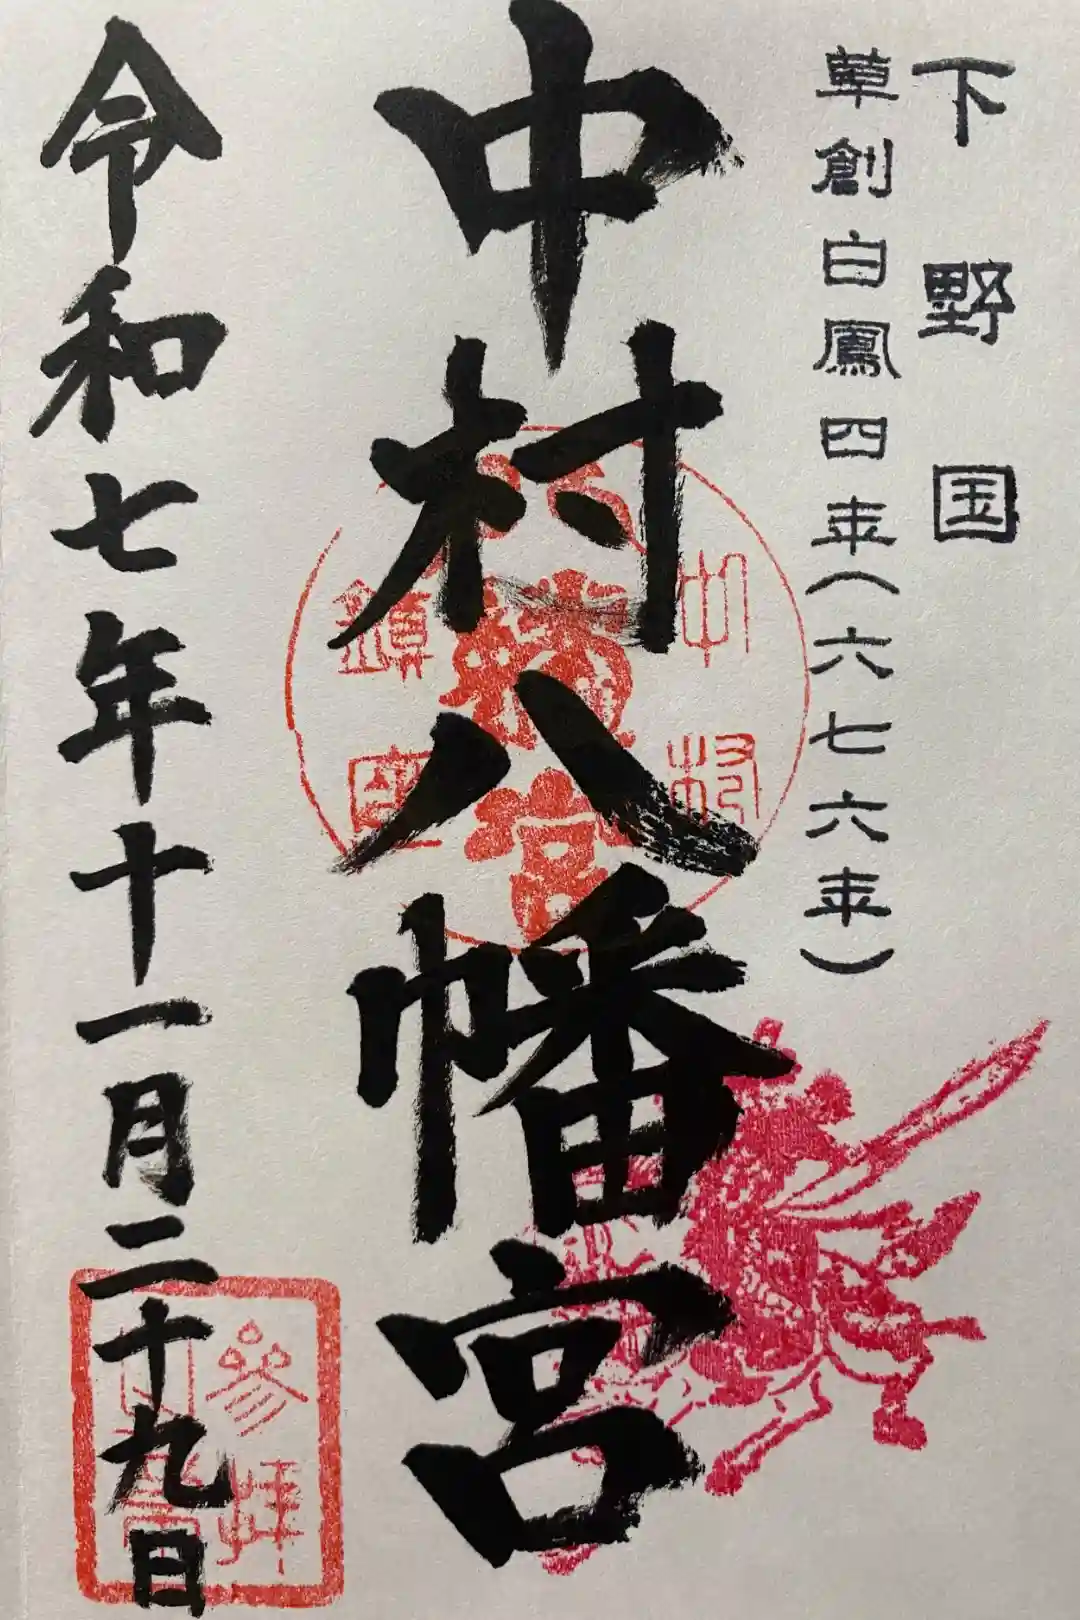 下野国
草創白鳳四年(六七六年)
中村八幡宮
中村
鎮座
宮
令和七年十一月二十九日
参拝